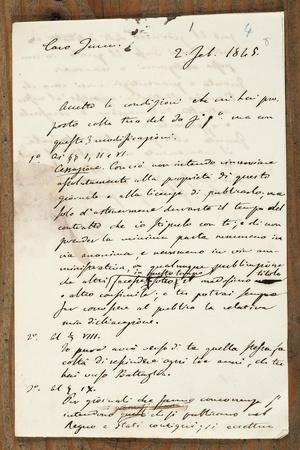 1 4
Caro Jenni. 2. Feb. 1845.
Accetto le condizioni che mi hai pro-
posto colla tua del 30 ma con
queste 3 modificazioni.
1º Ai §§ 1, II e VI.
Cessazione. Con ciò non intendo rinunziare
assolutamente alla proprietà di questo
giornale e alla licenza di pubblicarlo, ma
solo d'astenermene durante il tempo del
contratto che io stipulo con te; e di non
prender la minima parte nemmeno in
via anonima, e nemmeno in via am-
ministrativa, in questo tempo pubblicazione
de altri col medesimo titolo
o altro consimile; e tu potrai sempre
far conoscere al pubblico la relativa
mia dichiarazione.
2º. Al § VIII.
Io avrò verso di te quella stessa fa-
coltà di rescindere ogni tre anni, che tu
hai verso Battaglia.
3º. Al § IX.
Per giornali che fanno concorrenza si
intendono quelli che si pubblicano nel
Regno e Stati contigui; si eccettua